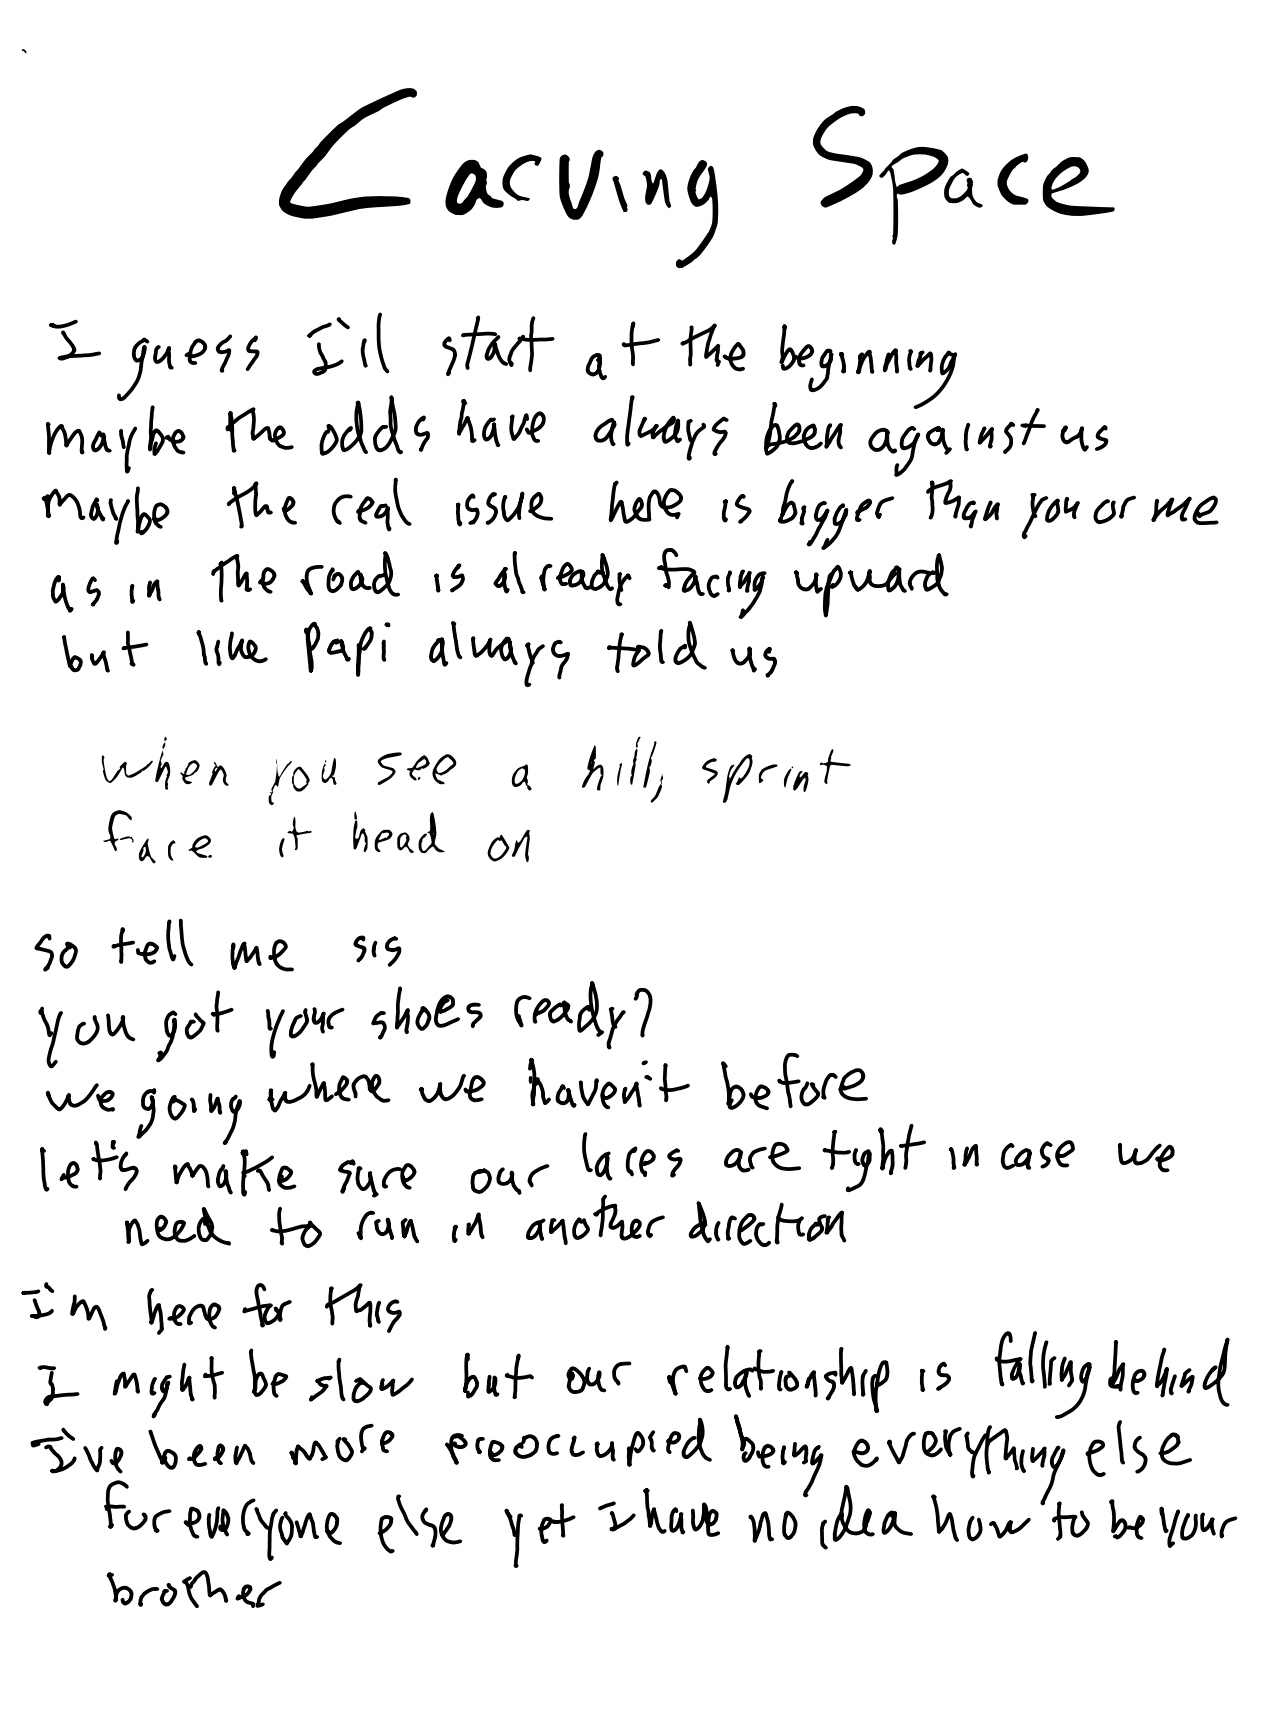 Carving Space
I guess I'll start at the beginning
maybe the odds have always been against us
maybe the real issue here is bigger than you or me
as in the road is already facing upward
but like Papi always told us
when you see a hill, sprint
face it head on
so tell me sis
you got your shoes ready?
we going where we haven't before
let's make sure our laces are tight in case we
need to run in another direction
I'm here for this
I might be slow but our relationship is falling behind
I've been more preoccupied being everything else
for everyone else yet I have no idea how to be your
brother